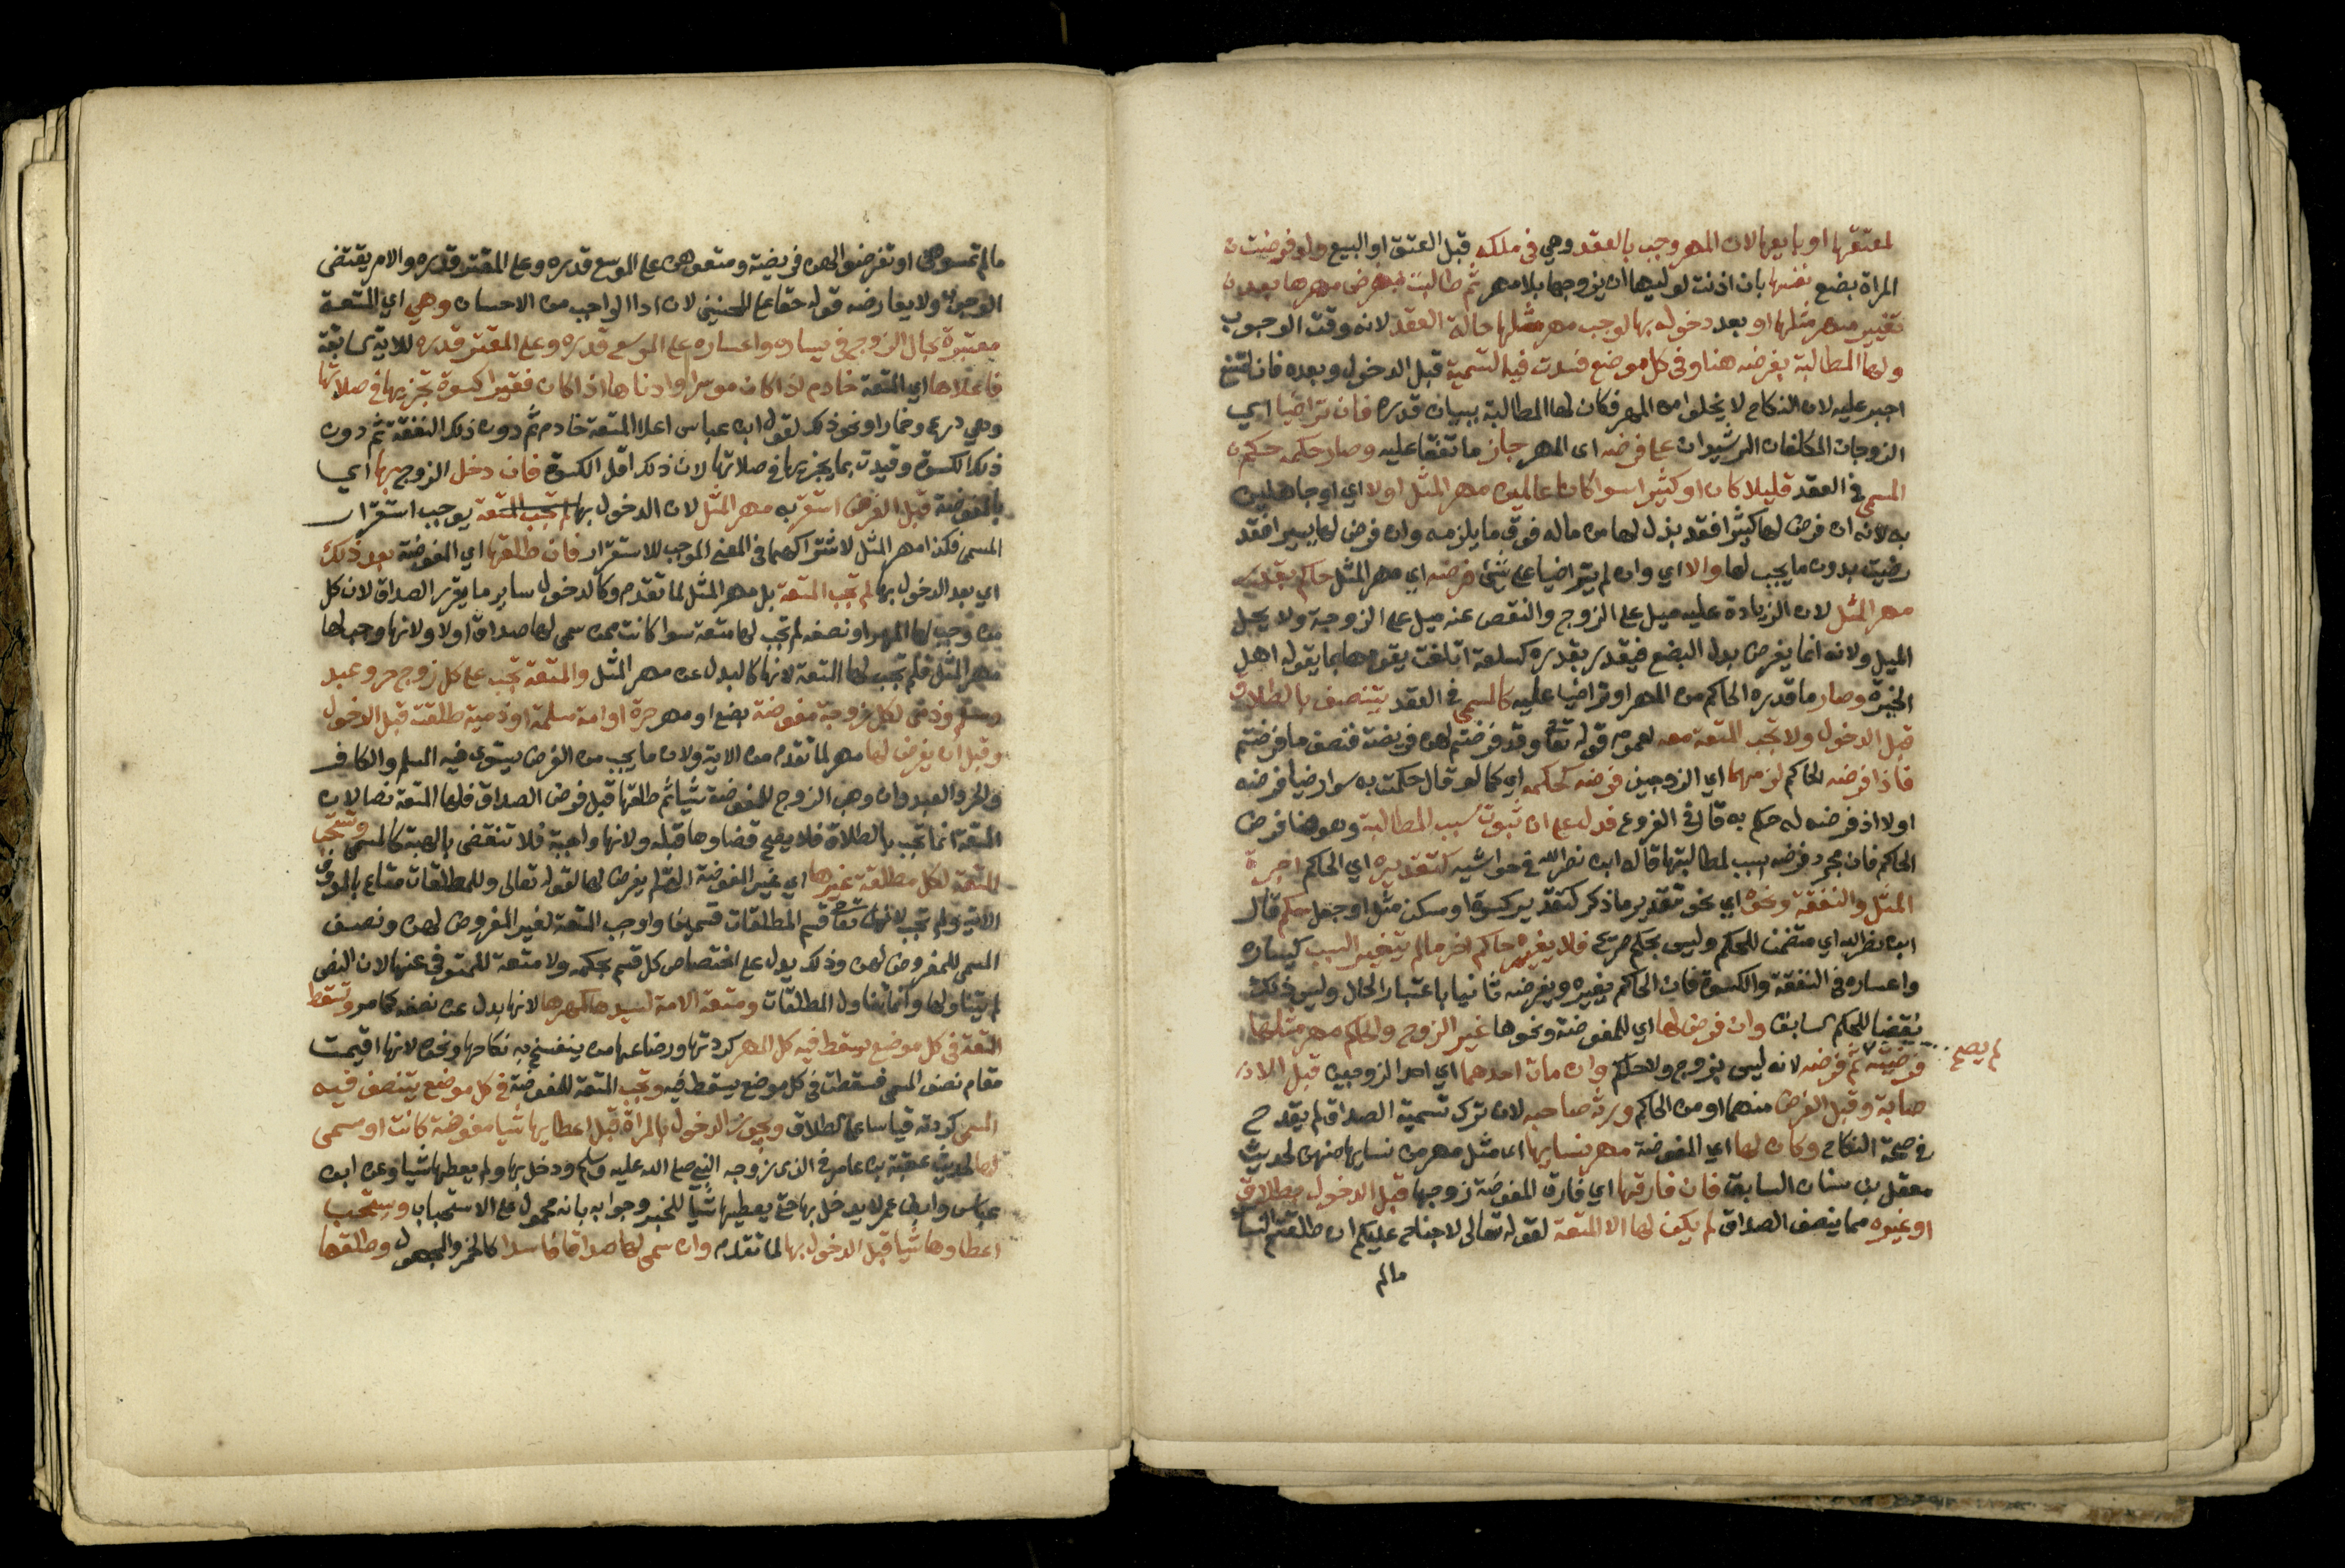 لمعتقها او بايعها لان المهر وجب بالعقد وهي في ملكه قبل العتق او البيع ولو فوضت
المراة بضع نفسها بان اذنت لوليها ان يزوجها بلا مهر ثم طالبت بفرض مهرها بعد
تغيير مهر مثلها او بعد دخوله بها لوجب مهر مثلها حالة العقد لانه وقت الوجوب
ولها المطالبة بفرضه هنا وفي كل موضع فسدت فيه التسمية قبل الدخول وبعده فان امتنع
اجبر عليه لان النكاح لا يخلوا من المهر فكان لها المطالبة ببيان قدره فان تراضيا اي
الزوجان المكلفان الرشيدان على فرضه اى المهر جاز ما اتفقا عليه وصار حكمه حكم
المسمى في العقد قليلا كان او كثيرا سوا كانا عالمين مهر المثل اولا اي او جاهلين
به لانه ان فرض لها كثيرا فقد بذل لها من ماله فوق ما يلزمه وان فرض لها يسيرا فقد
رضيت بدون ما يجب لها والا اي وان لم يتراضيا على شئ فرضه اي مهر المثل حاكم بقدر
مهر المثل لان الزيادة عليه ميل على الزوج والنقص عنه ميل على الزوجة ولا يحل
الميل ولانه انما يفرض بدل البضع فيقدر بقدره كسلعة اتلفت يقومها بما يقوله اهل
الخبرة وصار ما قدره الحاكم من المهر او تراضيا عليه كالمسمى في العقد يتنصف بالطلاق
قبل الدخول ولا تجب المتعة معه لعموم قوله تعا وقد فرضتم لهن فريضة فنصف ما فرضتم
فاذا فرضه الحاكم لزمهما اي الزوجين فرضه كحكمه اي كما لو قال حكمت به سوا رضيا فرضه
اولا اذ فرضه له حكم به قال في الفروع فدل على ان ثبوت سبب المطالبة وهو هنا فرض
الحاكم فان مجرد فرضه سبب لمطالبتها قاله ابن نصر الله في حواشيه كتقديره اي الحاكم اجرة
المثل والنفقة ونحوه اي نحو تقدير ما ذكر كتقدير كسوة او سكن مثل او جعل حكم قال
ابن نصر الله اي متضمن للحكم وليس بحكم صريح فلا يغيره حاكم اخر ما لم يتغير السبب كيساره
واعساره في النفقة والكسوة فان الحاكم يغيره ويفرضه ثانيا باعتبار الحال وليس ذلك
نقضا للحكم السابق وان فرض لها اي للمفوضة ونحوها غير الزوج والحاكم مهر مثلها
فرضيته ثم فرضه لانه ليس بزوج ولا حاكم وان مات احدهما اي احد الزوجين قبل الا
لم يصح
صابة وقبل الفرض منهما او من الحاكم ورثه صاحبه لان ترك تسمية الصداق لم يقدح
في صحة النكاح وكان لها اي المفوضة مهر نسايها اى مثل مهر من نسايها منهن لحديث
معقل بن سنان السابق فان فارقها اي فارق المفوضة زوجها قبل الدخول بطلاق
او غيره مما ينصف الصداق لم يكن لها الا المتعة لقوله تعالى لا جناح عليكم ان طلقتم النسا
مالم
مالم تمسوهن او تفرضوا لهن فريضة ومتعوهن على الموسع قدره وعلى المقتر قدره والامر يقتضى
الوجوب ولا يعارضه قوله حقا على المحسنين لان ادا الواجب من الاحسان وهي اي المتعة
معتبرة بحال الزوج في يساره واعساره على الموسع قدره وعلى المقتر قدره للاية السابقة
فاعلاها اي المتعة خادم اذا كان موسرا وادناها اذا كان فقيرا كسوة تجزيها في صلاتها
وهي درع وخمار او نحو ذلك لقول ابن عباس اعلا المتعة خادم ثم دون ذلك النفقة ثم دون
ذلك الكسوة وقيدت بما يجزيها في صلاتها لان ذلك اقل الكسوة فان دخل الزوج بها اي
بالمفوضة قبل الفرض استقر به مهر المثل لان الدخول بها لم تجب المتعة يوجب استقرار
المسمى فكذا مهر المثل لاشتراكهما في المعنى الموجب للاستقرار فان طلقها اي المفوضة بعد ذلك
اي بعد الدخول بها لم تجب المتعة بل مهر المثل لما تقدم وكالدخول ساير ما يقرر الصداق لان كل
من وجب لها المهر او نصفه لم تجب لها متعة سوا كانت ممن سمى لها صداق اولا ولانها وجب لها
مهر المثل فلم تجب لها المتعة لانها كالبدل عن مهر المثل والمتعة تجب على كل زوج حر وعبد
ومسلم وذمى لكل زوجة مفوضة بضع او مهر حرة او امة مسلمة او ذمية طلقت قبل الدخول
وقبل ان يفرض لها مهر لما تقدم من الاية ولان ما يجب من الفرض يستوى فيه المسلم والكافر
والحر والعبد وان وهب الزوج للمفوضة شيا ثم طلقها قبل فرض الصداق فلها المتعة نصا لان
المتعة انما تجب بالطلاق فلا يصح قضاوها قبله ولانها واجبة فلا تنقضى بالهبة كالمسمى وتستحب
المتعة لكل مطلقة غيرها اي غير المفوضة التى لم يفرض لها لقوله تعالى وللمطلقات متاع بالمعروف
الاية ولم تجب لانه تعا قسم المطلقات قسمين واوجب المتعة لغير المفروض لهن ونصف
المسمى للمفروض لهن وذلك يدل على اختصاص كل قسم بحكمه ولا متعة للمتوفى عنها لان النص
لم يتناولها وانما تناول المطلقات ومتعة الامة لسيدها كمهرها لانها بدل عن نصفه كما مر وتسقط
المتعة في كل موضع يسقط فيه كل المهر كردتها ورضاعها من ينفسخ به نكاحها ونحوه لانها اقيمت
مقام نصف المسمى فسقطت في كل موضع يسقط فيه وتجب المتعة للمفوضة في كل موضع يتنصف فيه
المسمى كردته قياسا على الطلاق ويجوز الدخول بالمراة قبل اعطايها شيا مفوضة كانت او سمى
لها لحديث عقبة بن عامر في الذى زوجه النبي صلى الله عليه وسلم ودخل بها ولم يعطها شيا وعن ابن
عباس وابن عمر لا يدخل بها حتى يعطيها شيا للخبر وجوابه بانه محمول على الاستحباب ويستحب
اعطاوها شيا قبل الدخول بها لما تقدم وان سمى لها صداقا فاسدا كالخمر والمجهول وطلقها